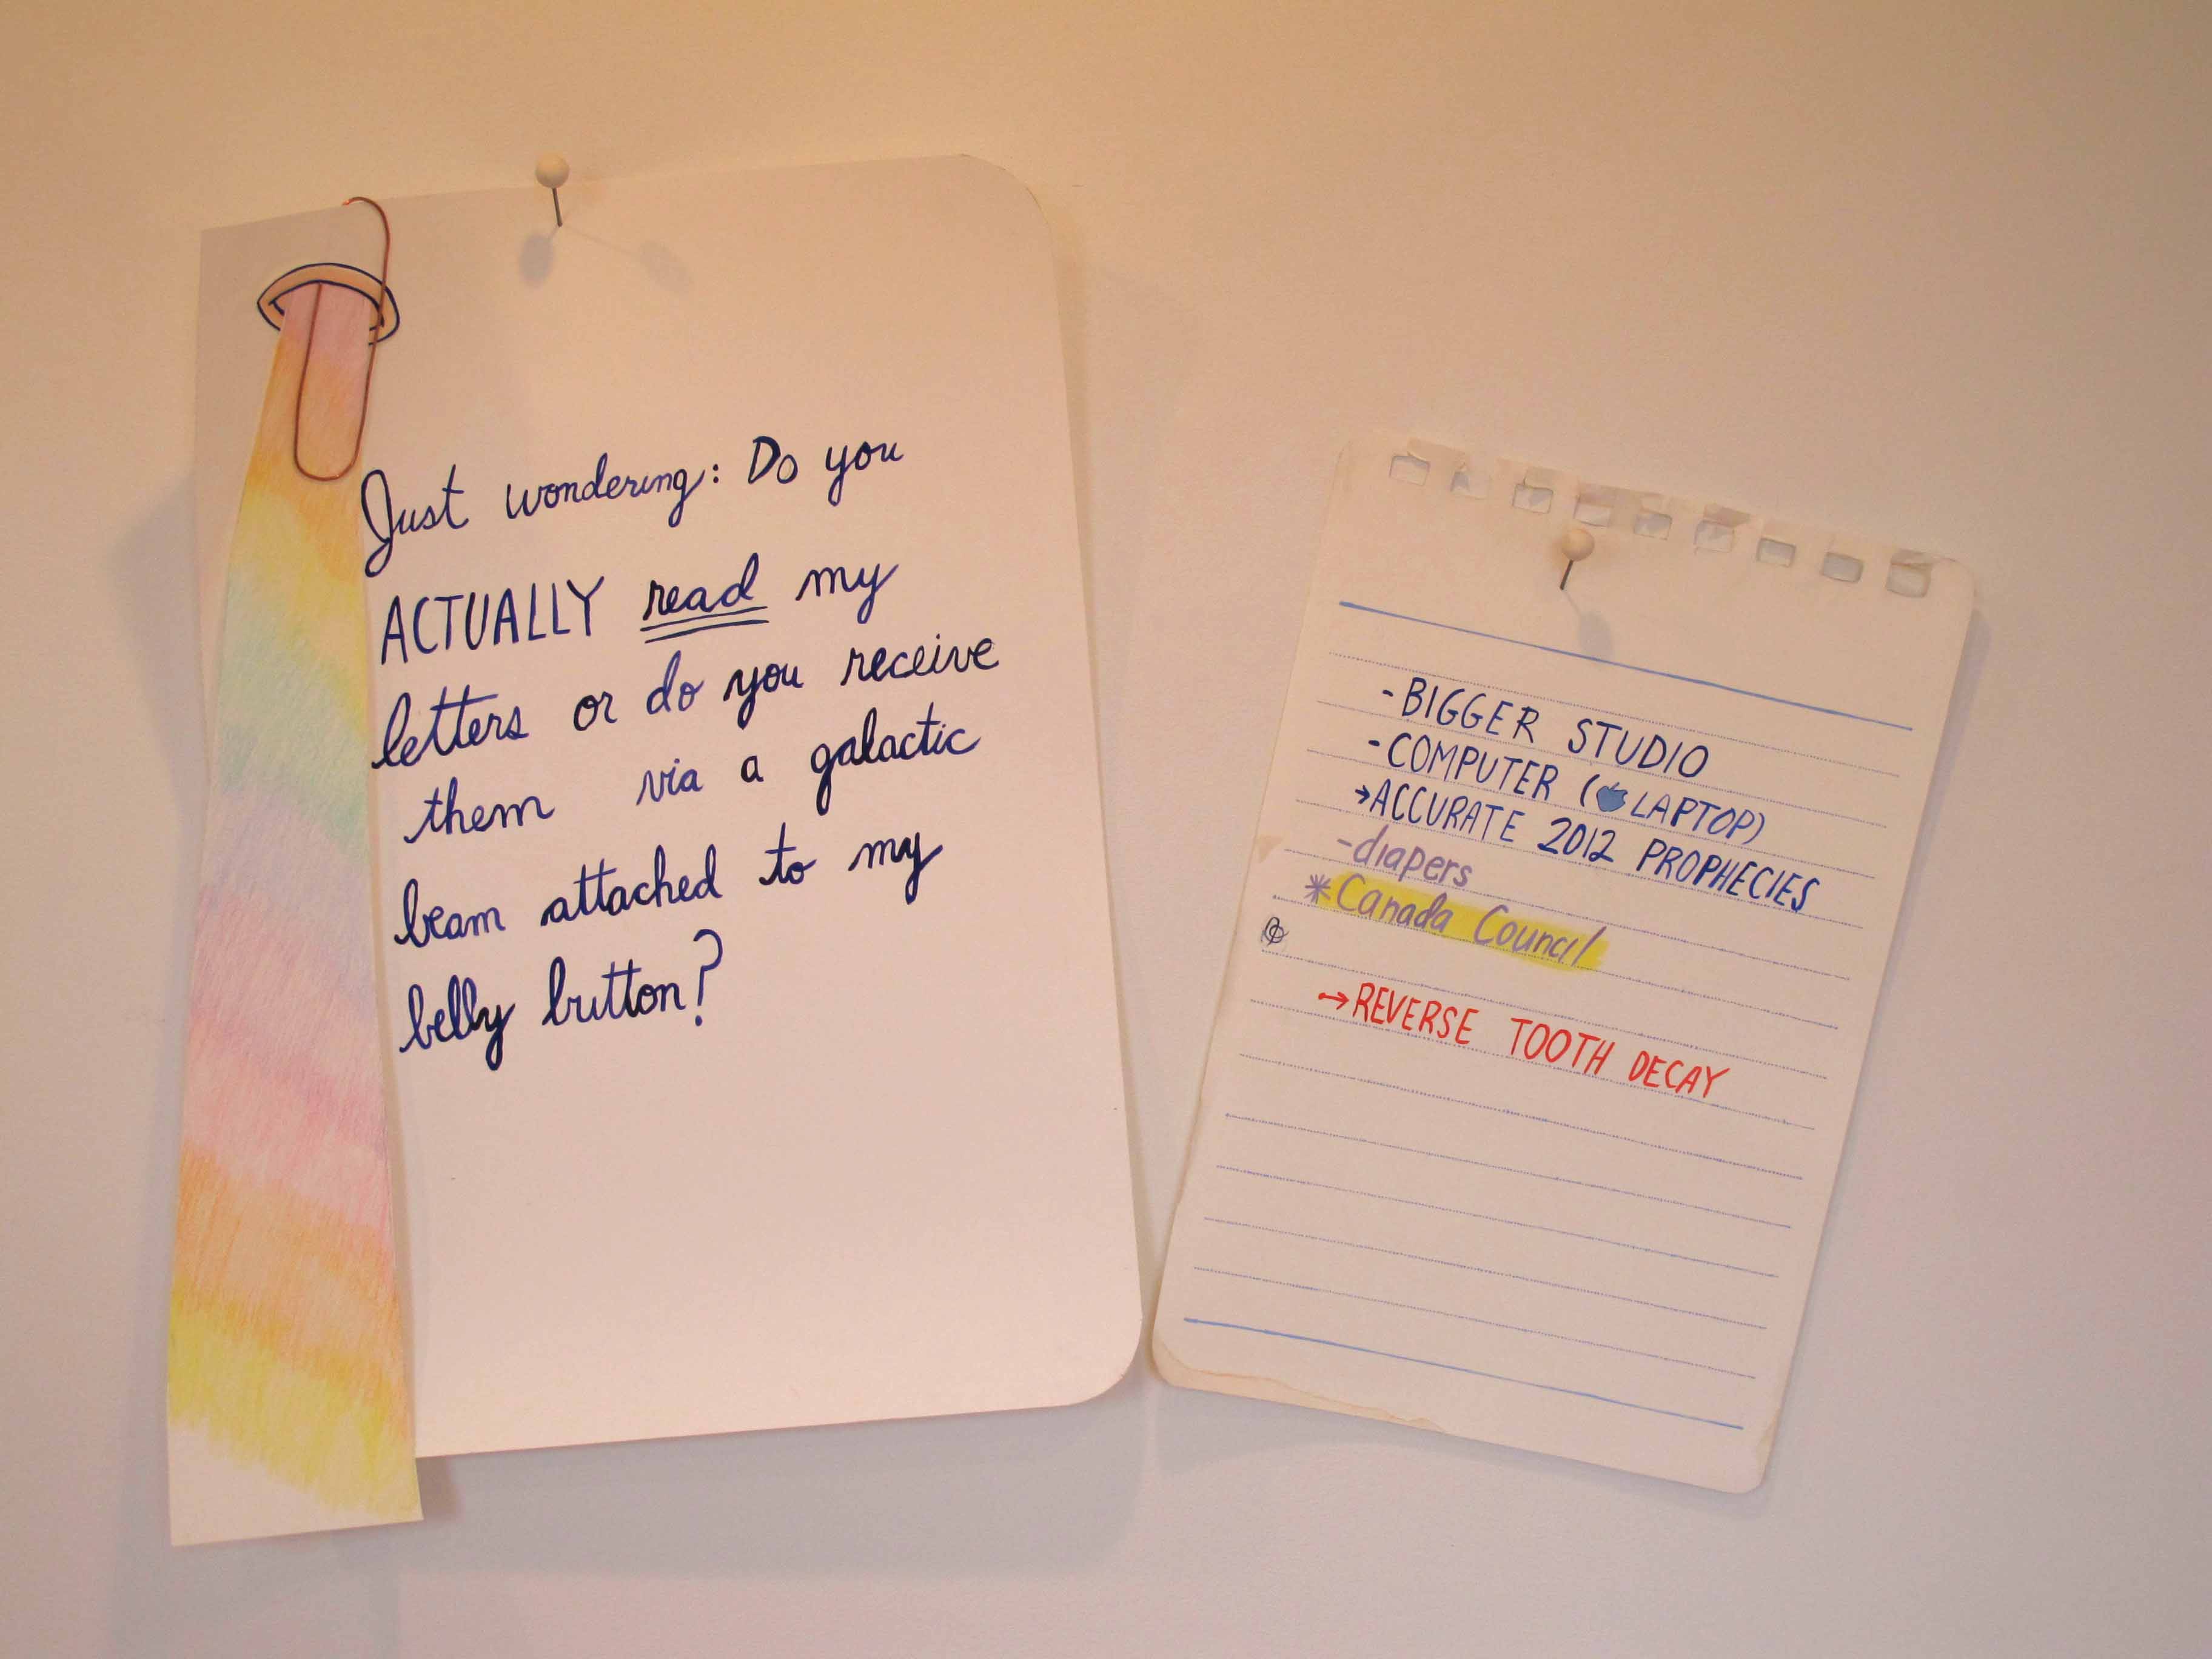 Just wondering: Do you
ACTUALLY read my
letters or do you receive
them via a galactic
beam attached to my
belly button?
-BIGGER STUDIO
-COMPUTER (LAPTOP)
→ACCURATE 2012 PROPHECIES
-diapers
*Canada Council
→REVERSE TOOTH DECAY